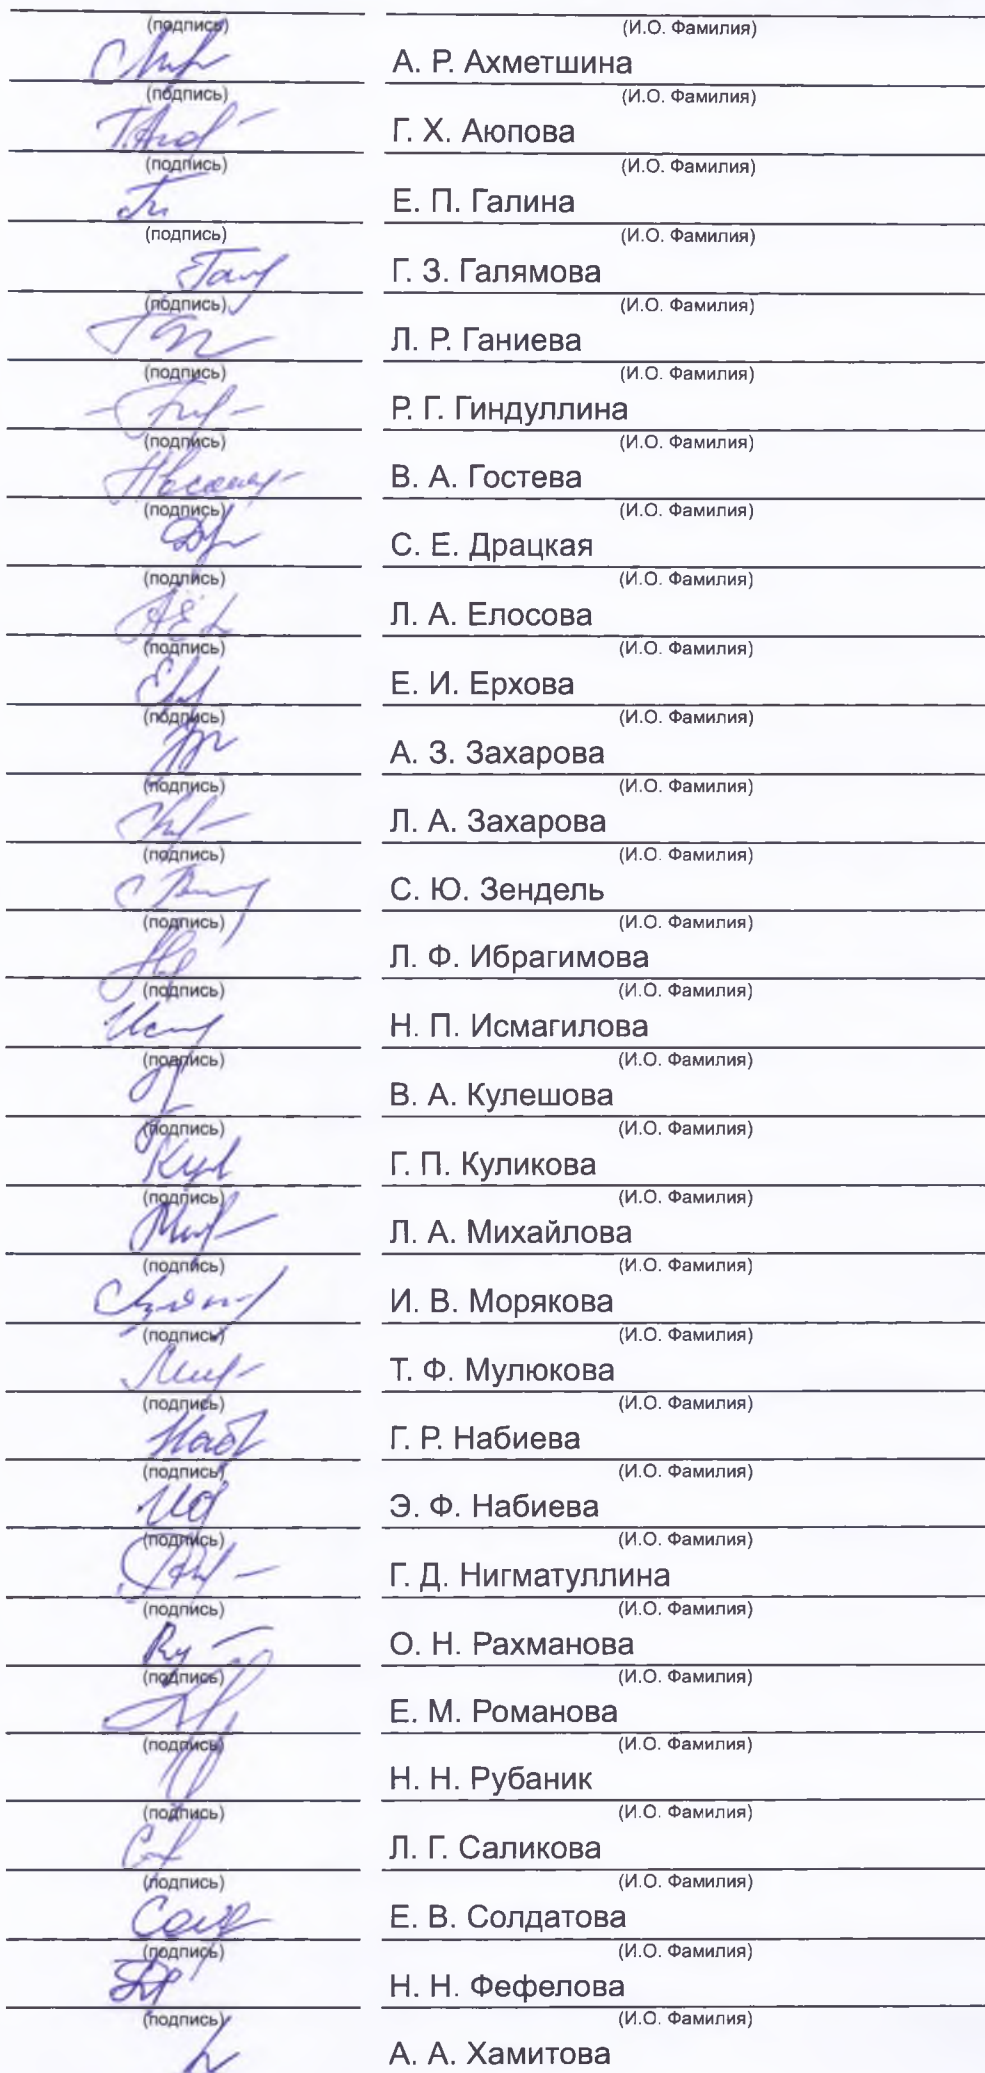 (подпись) (И.О. Фамилия)
А. Р. Ахметшина
(подпись) (И.О. Фамилия)
Г. Х. Аюпова
(подпись) (И.О. Фамилия)
Е. П. Галина
(подпись) (И.О. Фамилия)
Г. З. Галямова
(подпись) (И.О. Фамилия)
Л. Р. Ганиева
(подпись) (И.О. Фамилия)
Р. Г. Гиндуллина
(подпись) (И.О. Фамилия)
В. А. Гостева
(подпись) (И.О. Фамилия)
С. Е. Драцкая
(подпись) (И.О. Фамилия)
Л. А. Елосова
(подпись) (И.О. Фамилия)
Е. И. Ерхова
(подпись) (И.О. Фамилия)
А. З. Захарова
(подпись) (И.О. Фамилия)
Л. А. Захарова
(подпись) (И.О. Фамилия)
С. Ю. Зендель
(подпись) (И.О. Фамилия)
Л. Ф. Ибрагимова
(подпись) (И.О. Фамилия)
Н. П. Исмагилова
(подпись) (И.О. Фамилия)
В. А. Кулешова
(подпись) (И.О. Фамилия)
Г. П. Куликова
(подпись) (И.О. Фамилия)
Л. А. Михайлова
(подпись) (И.О. Фамилия)
И. В. Морякова
(подпись) (И.О. Фамилия)
Т. Ф. Мулюкова
(подпись) (И.О. Фамилия)
Г. Р. Набиева
(подпись) (И.О. Фамилия)
Э. Ф. Набиева
(подпись) (И.О. Фамилия)
Г. Д. Нигматуллина
(подпись) (И.О. Фамилия)
О. Н. Рахманова
(подпись) (И.О. Фамилия)
Е. М. Романова
(подпись) (И.О. Фамилия)
Н. Н. Рубаник
(подпись) (И.О. Фамилия)
Л. Г. Саликова
(подпись) (И.О. Фамилия)
Е. В. Солдатова
(подпись) (И.О. Фамилия)
Н. Н. Фефелова
(подпись) (И.О. Фамилия)
А. А. Хамитова